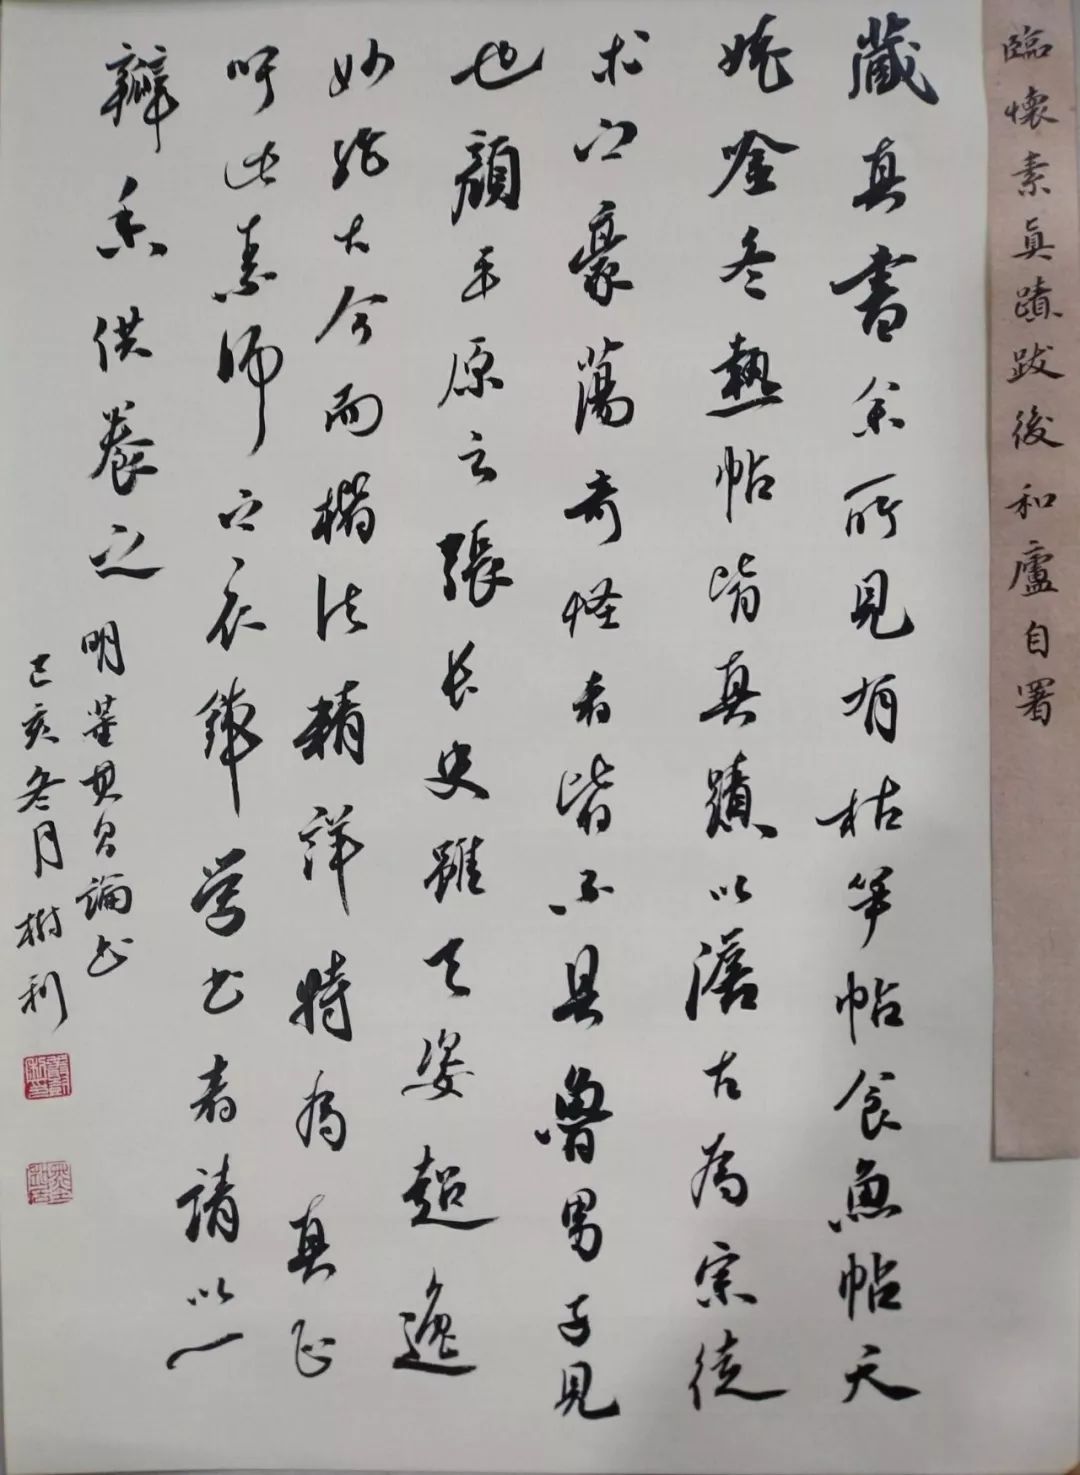 臨懷素真蹟跋後和廬自署
藏真書余所見有枯笋帖食魚帖天
姥唫冬熱帖皆真蹟以澹古為宗徒
求之豪蕩奇怪者皆不具魯男子見
也顏平原云張長史雖天姿超逸
妙絕古今而楷法精詳特為真正
吁此素師之衣鉢学书者請以一
瓣香供養之
明董其昌論书
己亥冬月樹利